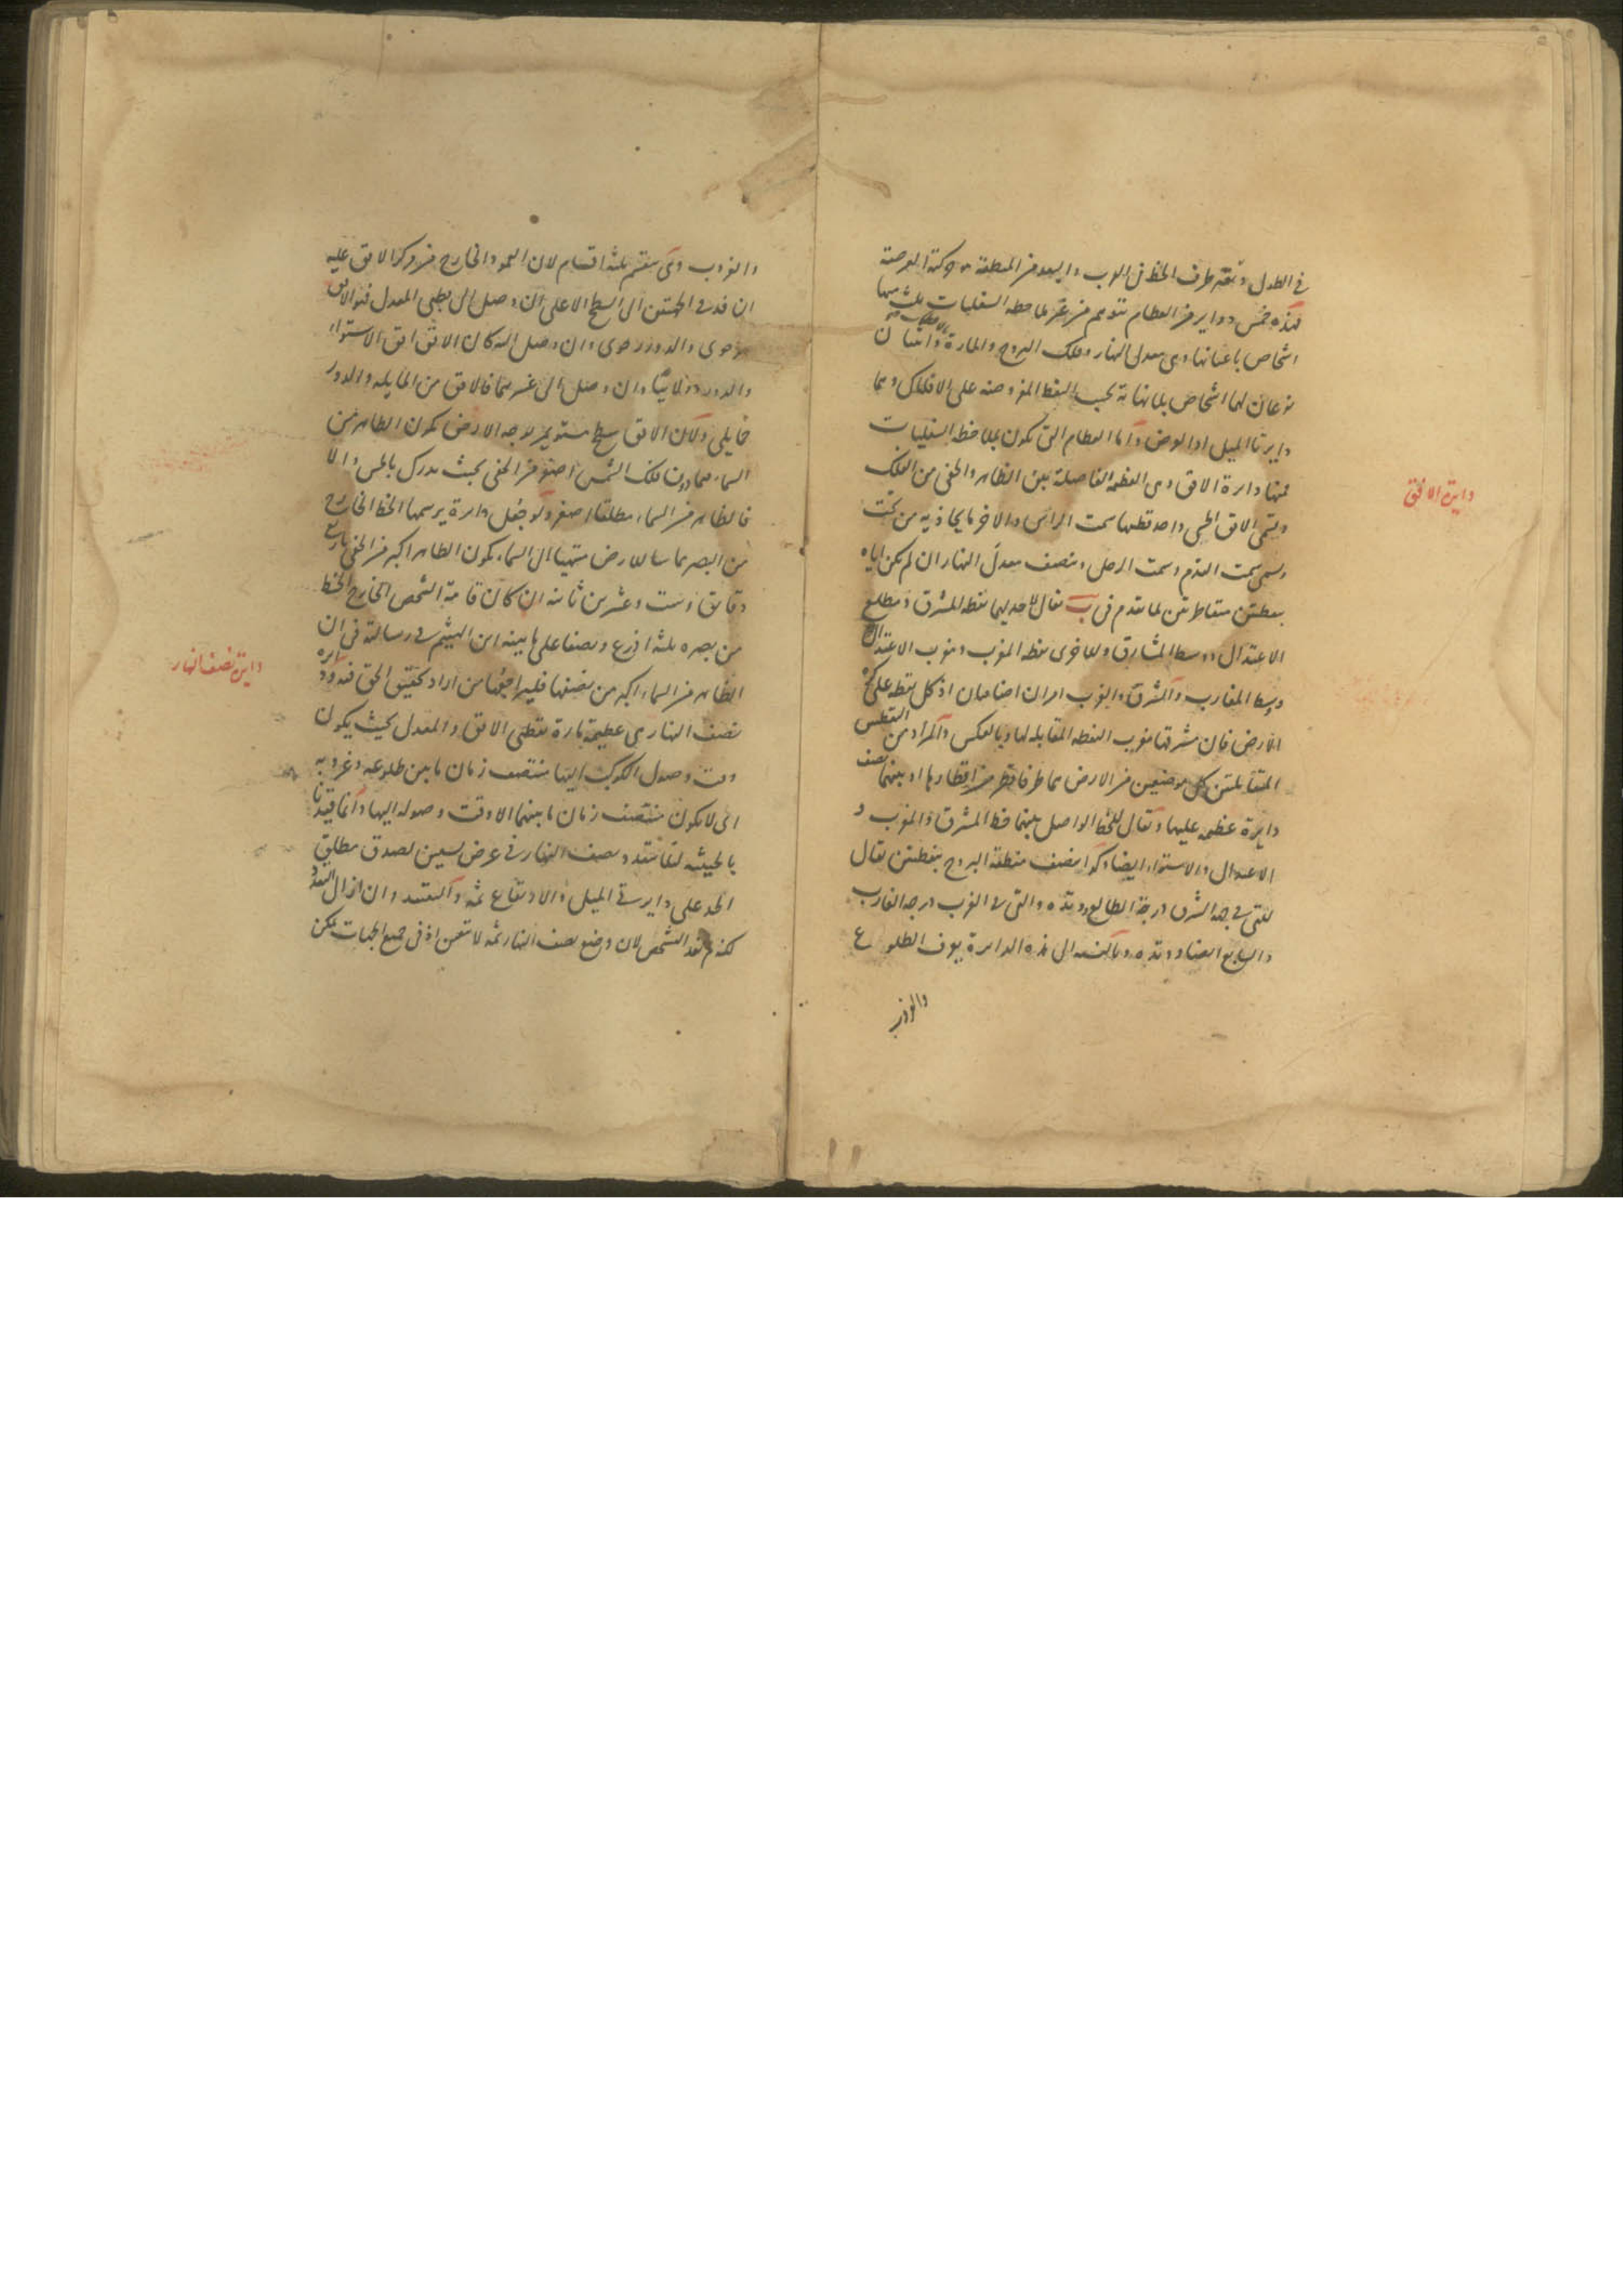 في الطول وبقدر طرف الخط في القرب والبعد من المنطقة حركته العرضية
فهذه خمس دواير من العظام تتوهم من غير ملاحظة السفليات ثلث منها
اشخاص باعيانها وهى معدل النهار وفلك البروج والمارة بالاقطاب واثنتان
نوعان لهما اشخاص بلا نهاية بحسب النقط المفروضة على الافلاك وهما
دايرتا الميل والعرض واما العظام التى تكون بملاحظة السفليات
فمنها دايرة الافق وهى العظيمة الفاصلة بين الظاهر والخفى من الفلك
وتسمى الافق الحسى واحد قطبيها سمت الراس والاخر ما يحاذيه من تحت
ويسمى سمت القدم وسمت الرجل وتنصف معدل النهار ان لم تكن اياه
بنقطتين متقاطرتين لما تقدم فى ب تقال لاحديهما نقطة المشرق ومطلع
الاعتدال ووسط المشارق وللاخرى نقطة المغرب ومغرب الاعتدال
ووسط المغارب والشرق والغرب امران اضافيان اذ كل نقطة على
الارض فان مشرقها مغرب النقطة المقابلة لها وبالعكس والمراد من النقطتين
المتقابلتين كل موضعين من الارض هما طرفا قطر من اقطارها او بينهما نصف
دايرة عظيمة عليها وتقال للخط الواصل بينهما خط المشرق والمغرب و
الاعتدال والاستواء ايضا وكذا ينصف منطقة البروج بنقطتين تقال
للتى فى جهة الشرق درجة الطالع ووتده والتى فى الغرب درجة الغارب
والسابع ايضا ووتده وبالنسبة الى هذه الدايرة يعرف الطلوع
والغروب
دايرة الافق
والغروب وهى تنقسم ثلثة اقسام لان العمود الخارج من مركز الافق عليه
ان نفذ فى الجهتين الى السطح الاعلى ان وصل الى قطبى المعدل فهو الافق
رحوى والدور رحوى وان وصل اليه كان الافق افق الاستواء
والدور دولابيا وان وصل الى غيرهما فالافق من المايلة والدور
حمايلى ولكن الافق سطح مستو يمر بوجه الارض يكون الظاهر من
السماء فيما دون فلك الشمس اصغر من الخفى بحيث يدرك بالحس والا
فالظاهر من السماء مطلقا اصغر ولو جعل دايرة يرسمها الخط الخارج
من البصر مماسا للارض منتهيا الى السماء يكون الظاهر اكبر من الخفى باربع
دقايق وست وعشرين ثانية ان كان قامة الشخص الخارج الخط
من بصره ثلثة اذرع ونصفا على ما بينه ابن الهيثم فى رسالته فى ان
الظاهر من السماء اكبر من نصفها فليراجعها من اراد تحقيق الحق فيه ودايرة
نصف النهار هى عظيمة مارة بقطبى الافق والمعدل بحيث يكون
وقت وصول الكوكب اليها منتصف زمان ما بين طلوعه وغروبه
اى لا يكون منتصف زمان ما بينهما الا وقت وصوله اليها وانما قيدنا
بالحيثية لئلا تتعدد نصف النهار فى عرض تسعين لصدق مطلق
الحد على دايرتى الميل والارتفاع ثمة والتقييد وان ازال التعدد
لكنه لم يفد الشخص لان وضع نصف النهار ثمة لا تتعين اذ فى جميع الجهات يمكن
دايرة نصف النهار